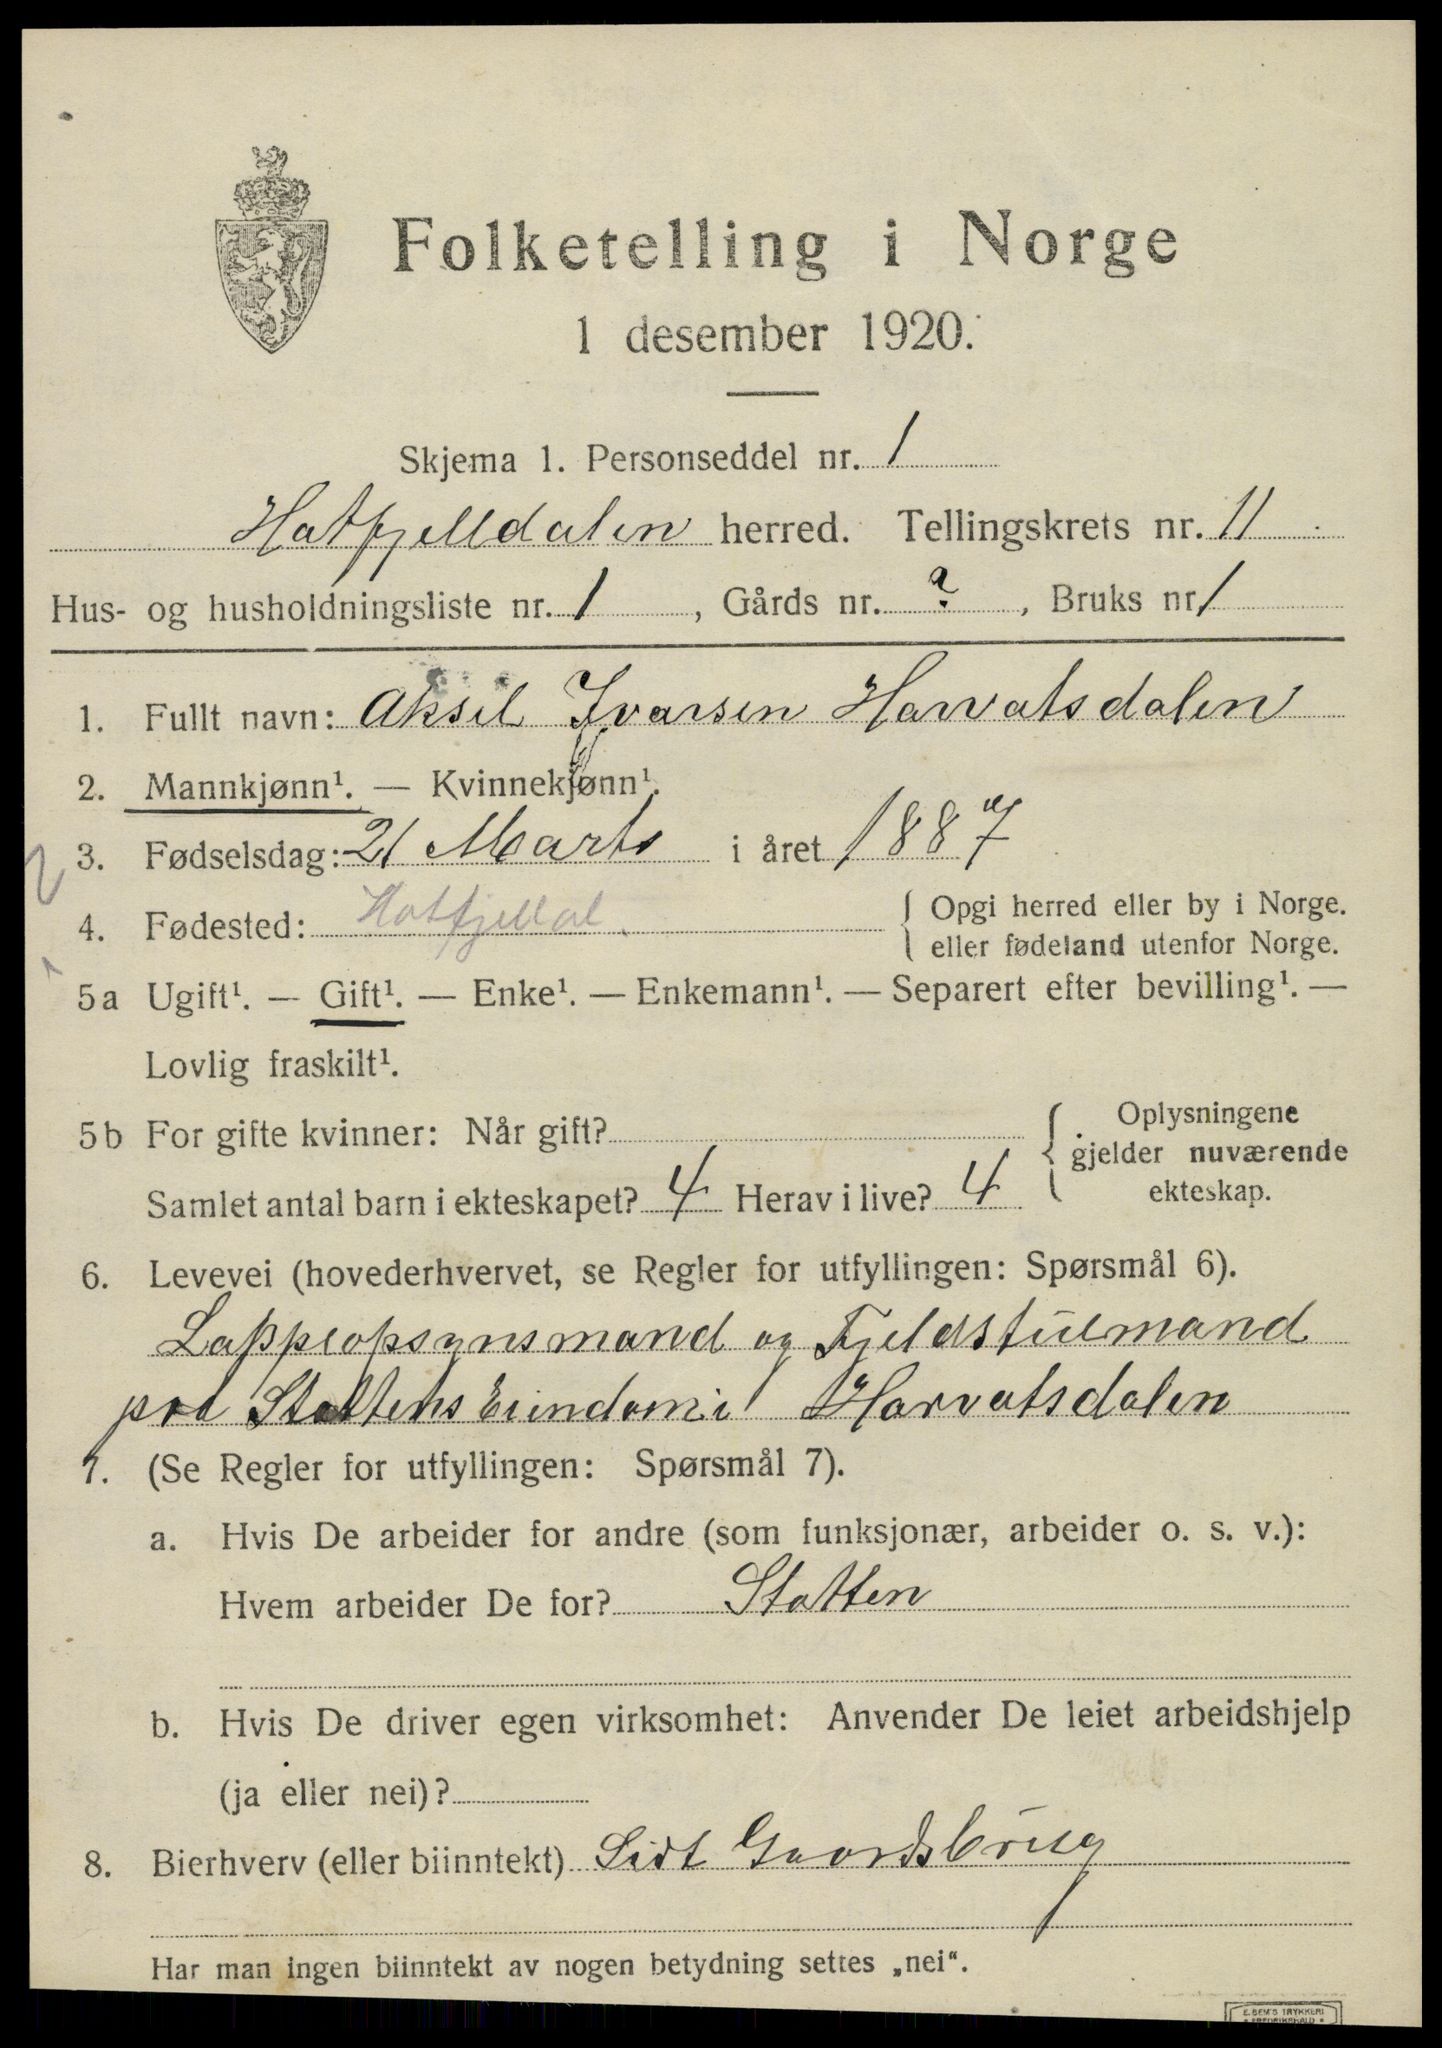 Folketelling i Norge
1 desember 1920.
Skjema 1. Personseddel nr. 1
Hatfjelldalen herred. Tellingskrets nr. 11
Hus- og husholdningsliste nr. 1, Gårds nr. ?, Bruks nr 1
1. Fullt navn: Aksel Ivarsen Harvatsdalen
2. Mannkjønn¹. — Kvinnekjønn¹.
3. Fødselsdag: 21 Marts i året 1887
4. Fødested: Hatfjeldal. { Opgi herred eller by i Norge.
eller fødeland utenfor Norge.
5a Ugift¹. — Gift¹. — Enke¹. — Enkemann¹. — Separert efter bevilling¹. —
Lovlig fraskilt¹.
5b For gifte kvinner: Når gift?
Oplysningene
gjelder nuværende
ekteskap.
Samlet antal barn i ekteskapet? 4 Herav i live? 4
6. Levevei (hovederhvervet, se Regler for utfyllingen: Spørsmål 6).
Lappeopsynsmand og Fjeldstuemand
paa Stattens Eiendom i Harvatsdalen
7. (Se Regler for utfyllingen: Spørsmål 7).
a. Hvis De arbeider for andre (som funksjonær, arbeider o. s. v.):
Hvem arbeider De for? Statten
b. Hvis De driver egen virksomhet: Anvender De leiet arbeidshjelp
(ja eller nei)?
8. Bierhverv (eller biinntekt) Lidt Gaardsbrug
Har man ingen biinntekt av nogen betydning settes „nei“.
E. SEM'S TRYKKERI
FREDRIKSHALD